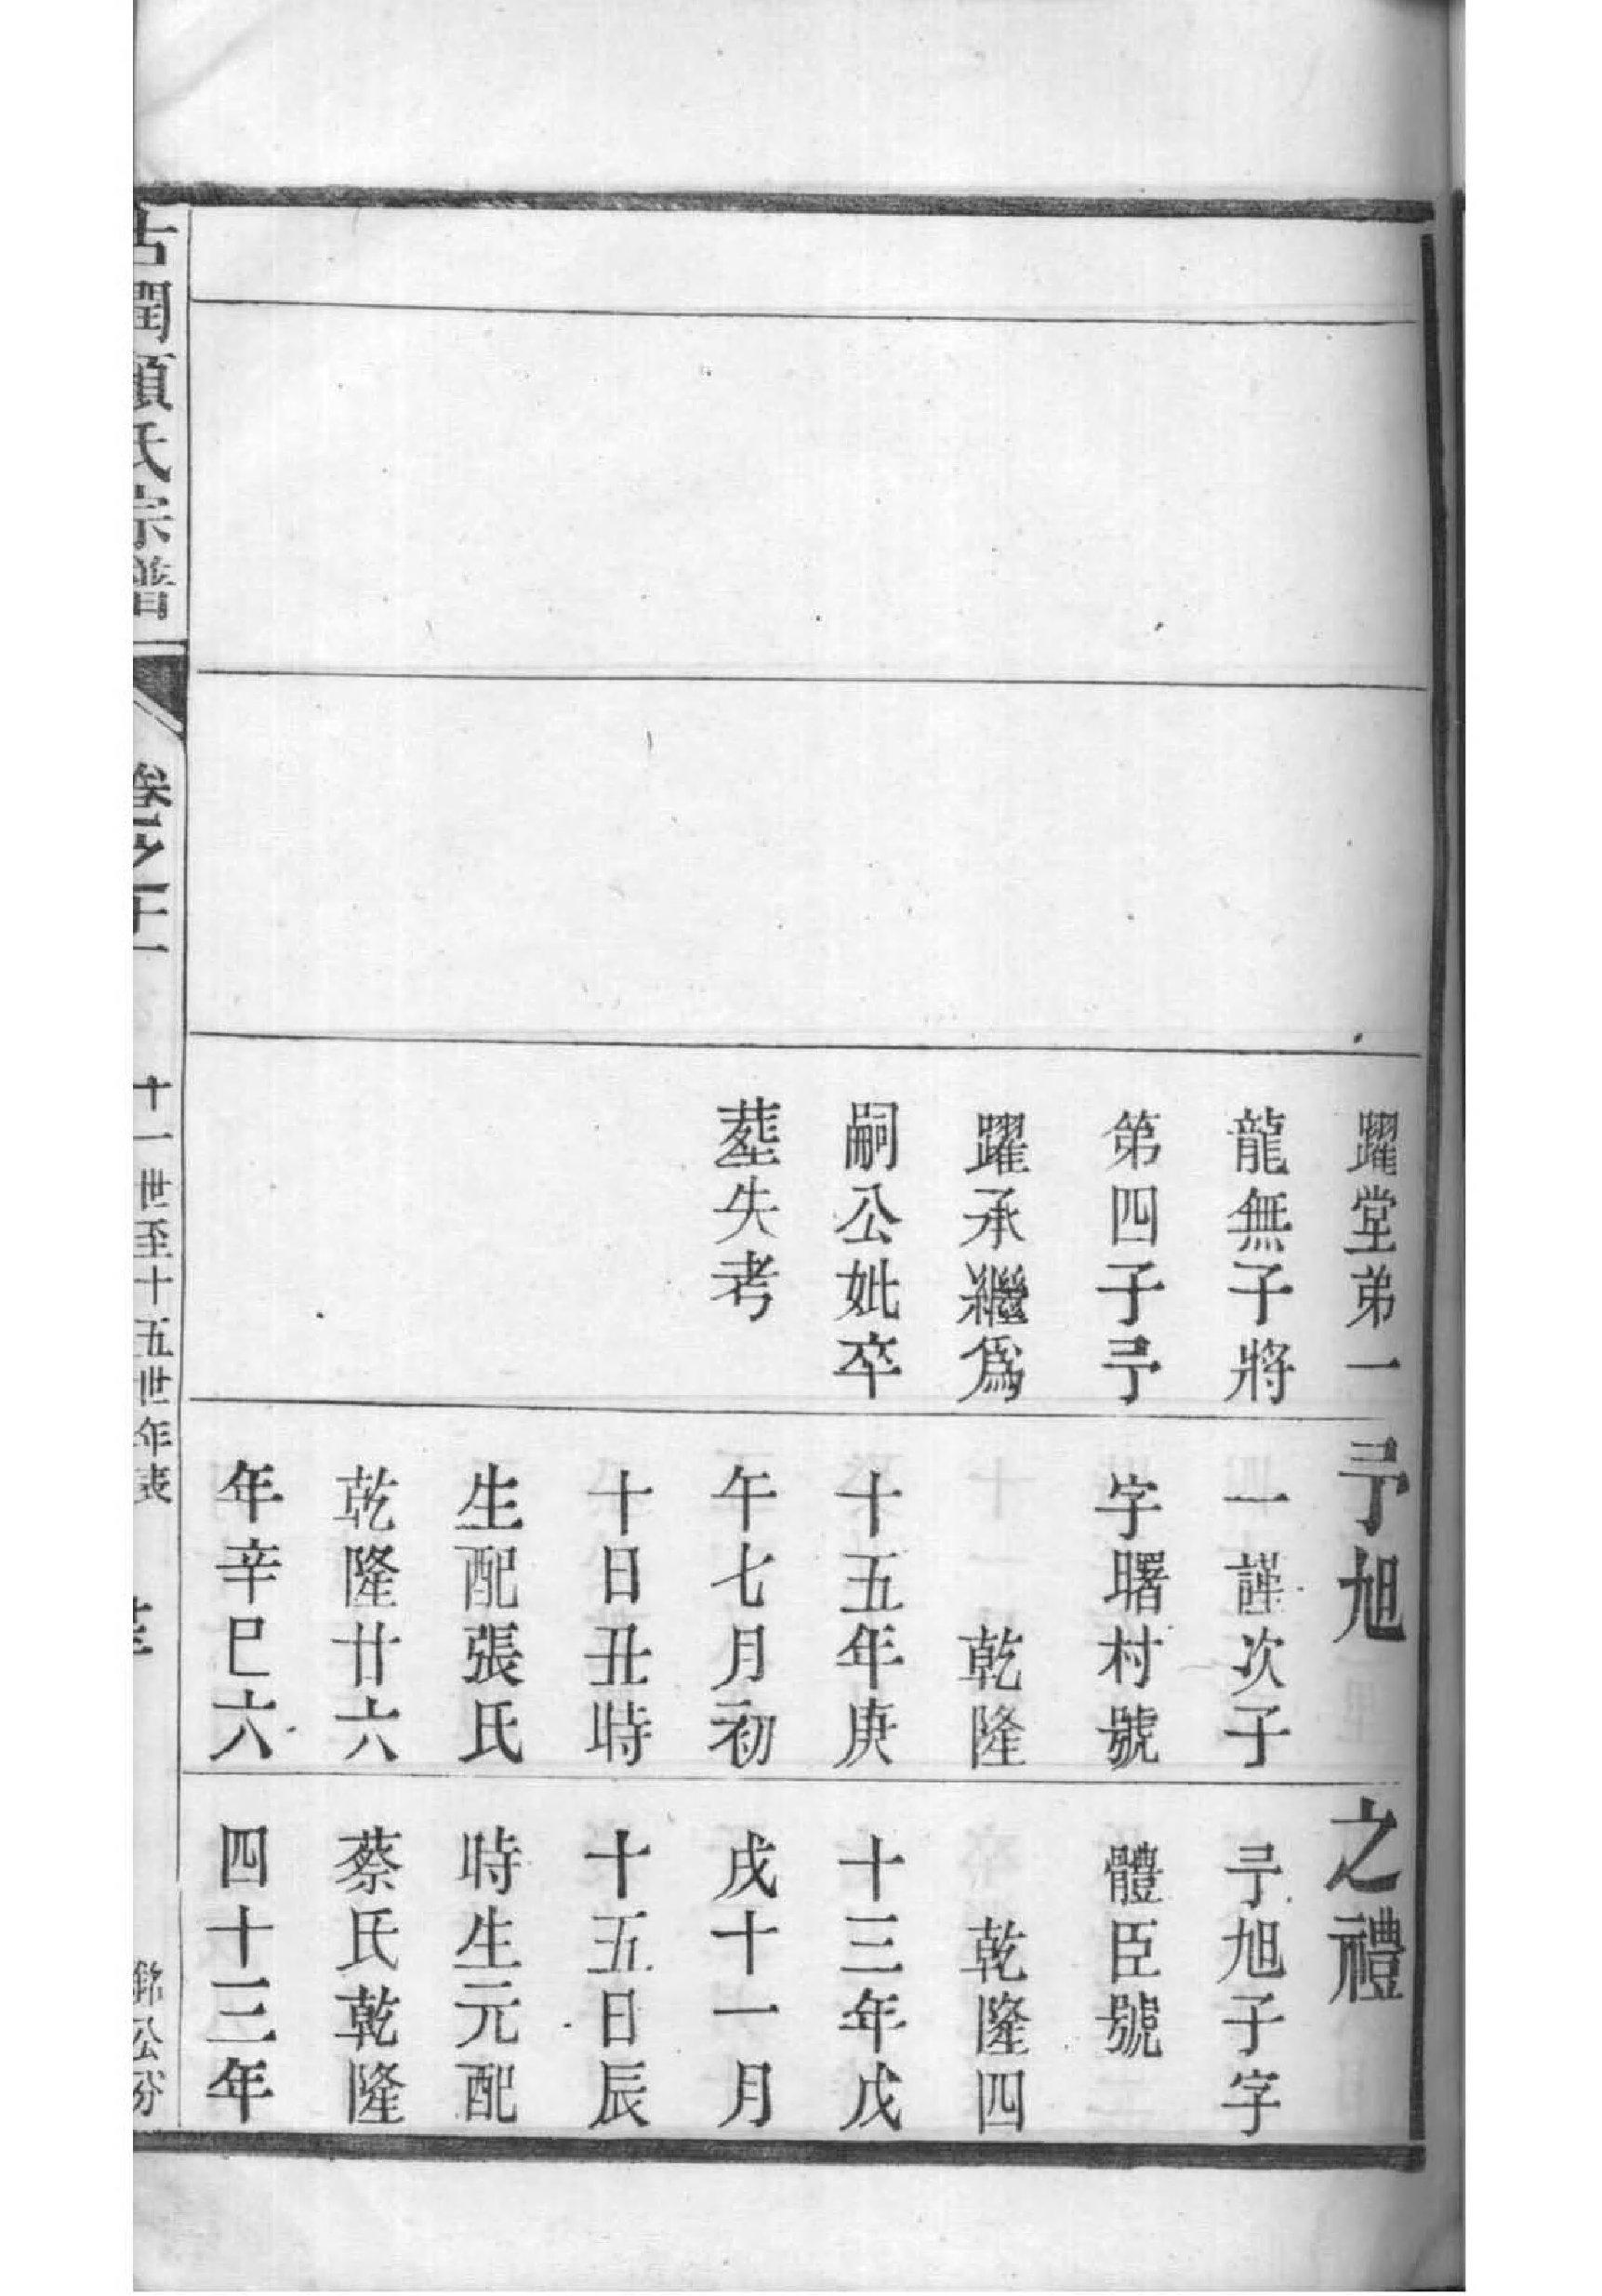 躍堂弟一
龍無子將
第四子
躍承繼爲
嗣公妣卒
塟失考
旭
一謹次子
字曙村號
乾隆
十五年庚
午七月初
十日丑時
生配張氏
乾隆廿六
年辛巳六
之禮
旭子字
體臣號
乾隆四
十三年戊
戌十一月
十五日辰
時生元配
蔡氏乾隆
四十三年
古潤氏宗譜
卷之二十一
十一世至十五世年表
公分